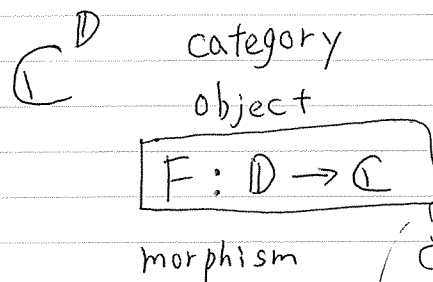 ℂ^𝔻 category
object
F : 𝔻 → ℂ
morphism